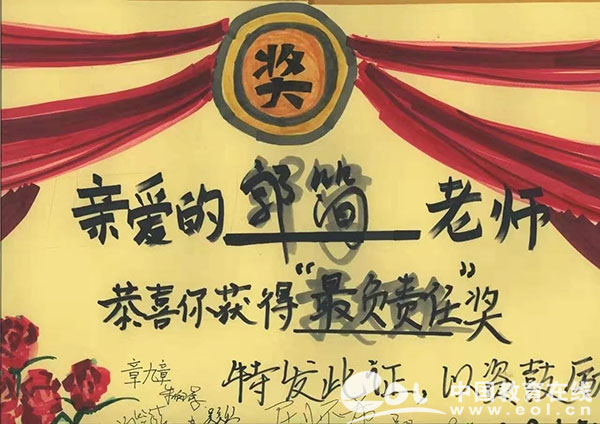 奖
亲爱的 郭简 老师
恭喜你获得“最负责任”奖
特发此证，以资鼓励
章九章
eol 中国教育在线
www.eol.cn